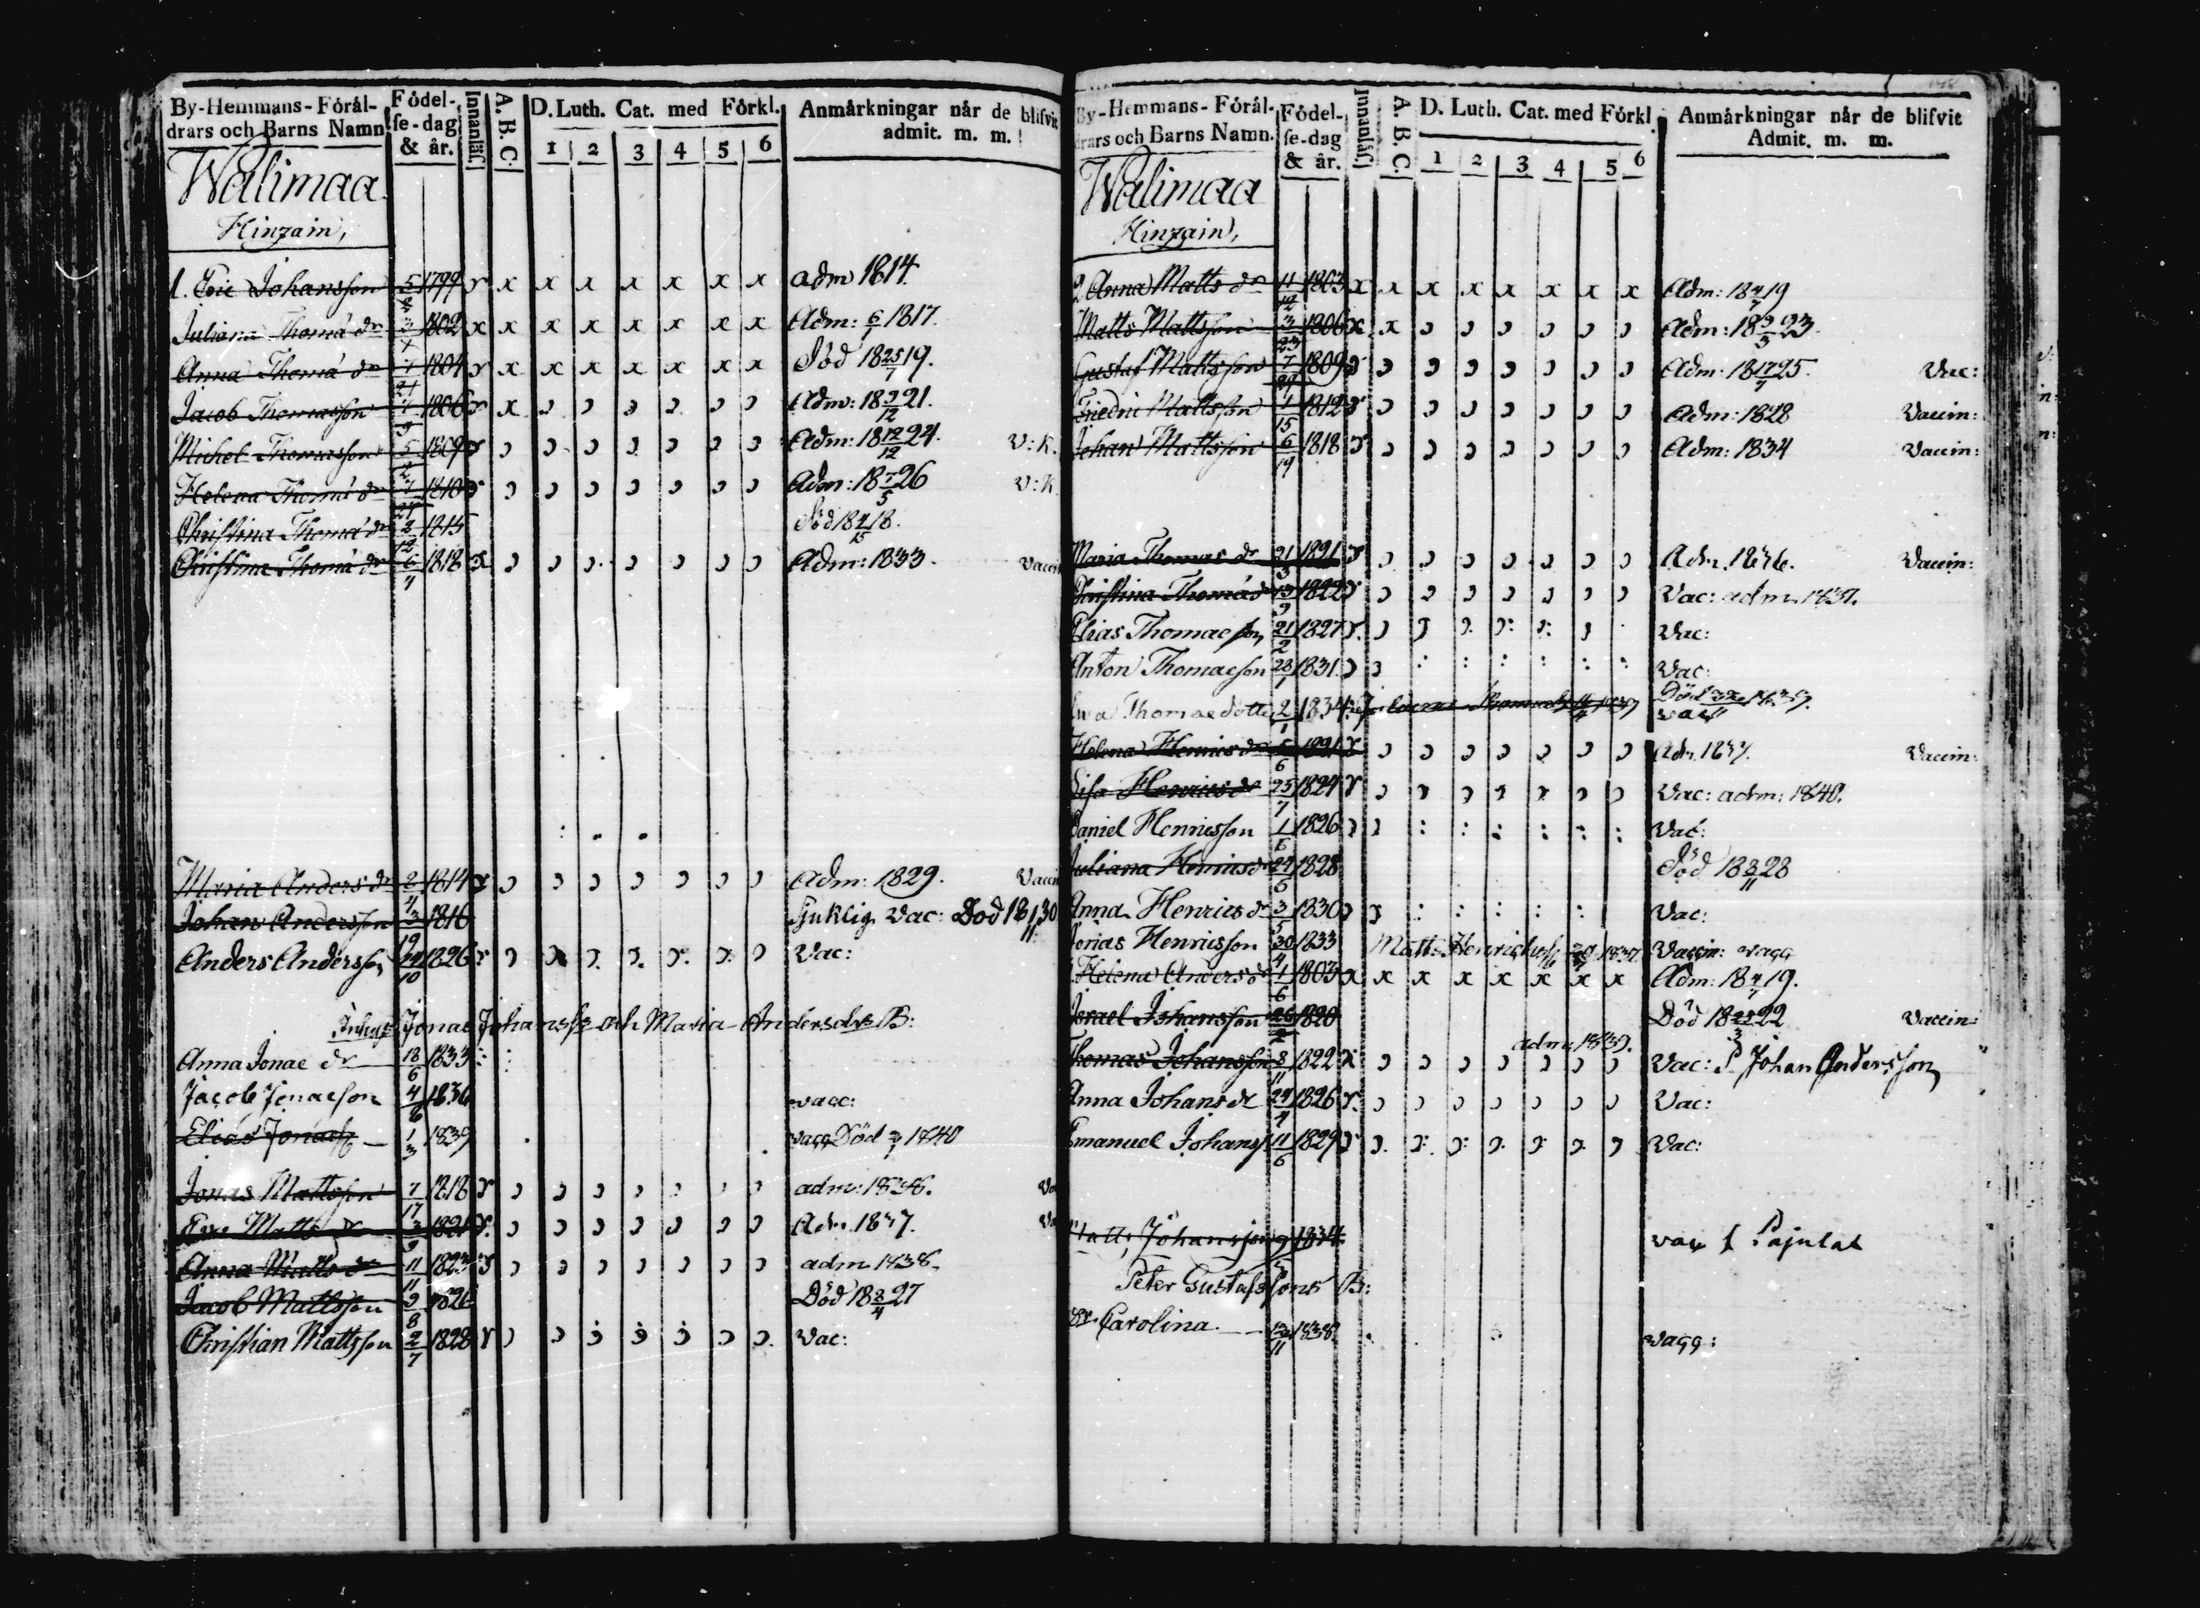 By-Hemmans-Föräl-
drars och Barns Namn.
Födel-
se-dag
& år.
Innanläs.
A. B. C.
D. Luth. Cat. med Förkl.
1 2 3 4 5 6
Anmärkningar når de blifvit
admit. m. m.
Walimaa
Hinzain,
1. Eric Johansson 5 1799 x x x x x x x adm 1814
Juliana Thomæ dr 3 1802 x x x x x x x x Adm: 6 1817.
Anna Thomæ dr 1804 x x x x x x x Död 18 25/1 19.
Jacob Thomasson 1806 x Adm: 18 9/12 21.
Michel Thomasson 5 1809 Adm: 18 12/12 24. V: K.
Helena Thomæ dr 1810 Adm: 18 7/5 26 V: K.
Christina Thomæ dr 1815 Död 18 4/15 18.
Christina Thomæ dr 6/4 1818 Adm: 1833. Vaccin
Maria Anders dr 2/4 1814 Adm: 1829. Vaccin
Johan Andersson 3/19 1816 Sjuklig Vac: Död 18 1/11 30
Anders Andersson 1826 Vac:
Inhys: Jonas Johanss: och Maria Andersdrs B:
Anna Jonæ dr 18/6 1833
Jacob Jonasson 4/6 1836 vacc:
Elias Jonass 1/3 1839 vagg Död 1840
Jonas Mattsson 7/17 1818 adm: 1836.
Eva Matts dr 3/9 1821 Adm. 1837.
Anna Matts dr 11/11 1823 adm. 1838.
Jacob Mattsson 9/8 1826 Död 18 8/4 27
Christian Mattsson 2/7 1828 Vac:
By-Hemmans-Föräl-
drars och Barns Namn.
Födel-
se-dag
& år.
Innanläs.
A. B. C.
D. Luth. Cat. med Förkl.
1 2 3 4 5 6
Anmärkningar når de blifvit
Admit. m. m.
Walimaa
Hinzain,
2 Anna Matts dr 11/12 1803 x x x x x x x x Adm: 18 4/7 19
Matts Mattsson 3/23 1806 x x Adm: 18 9/5 23.
Gustaf Mattsson 7/29 1809 Adm: 18 17/4 25. Vac:
Friedric Mattsson 1/15 1812 Adm: 1828 Vaccin:
Johan Mattsson 6/19 1818 Adm: 1834 Vaccin:
Maria Thomas dr 21/3 1821 Adm. 1836. Vaccin:
Christina Thomæ dr 13/9 1822 Vac: adm. 1837.
Elias Thomasson 21/2 1827 Vac:
Anton Thomasson 28/1 1831 Vac:
Eva Thomasdotter 2/1 1834 Död 1839.
Helena Henrics dr 5/6 1821 Adm 1837. Vaccin:
Lisa Henrics dr 25/7 1824 Vac: adm: 1840.
Daniel Henricsson 1/6 1826 Vac:
Juliana Henrics dr 1828 Död 18 3/11 28
Anna Henrics dr 3/5 1830 Vac:
Jonas Henricsson 30/4 1833 Matts Henricss 1837 Vaccin: vagg
Helena Anders dr 1/6 1803 x x x x x x x x Adm: 18 4/7 19.
Israel Johansson 26/2 1820 Död 18 22 Vaccin:
adm. 1839.
Thomas Johansson 8/11 1822 x Vac: Johan Andersson
Anna Johans dr 29/4 1826 Vac:
Emanuel Johanss 11/6 1829 Vac:
Matts Johansson 9 1834 vax Pajulax
Peter Gustafssons B:
Carolina 13/11 1838 vagg: